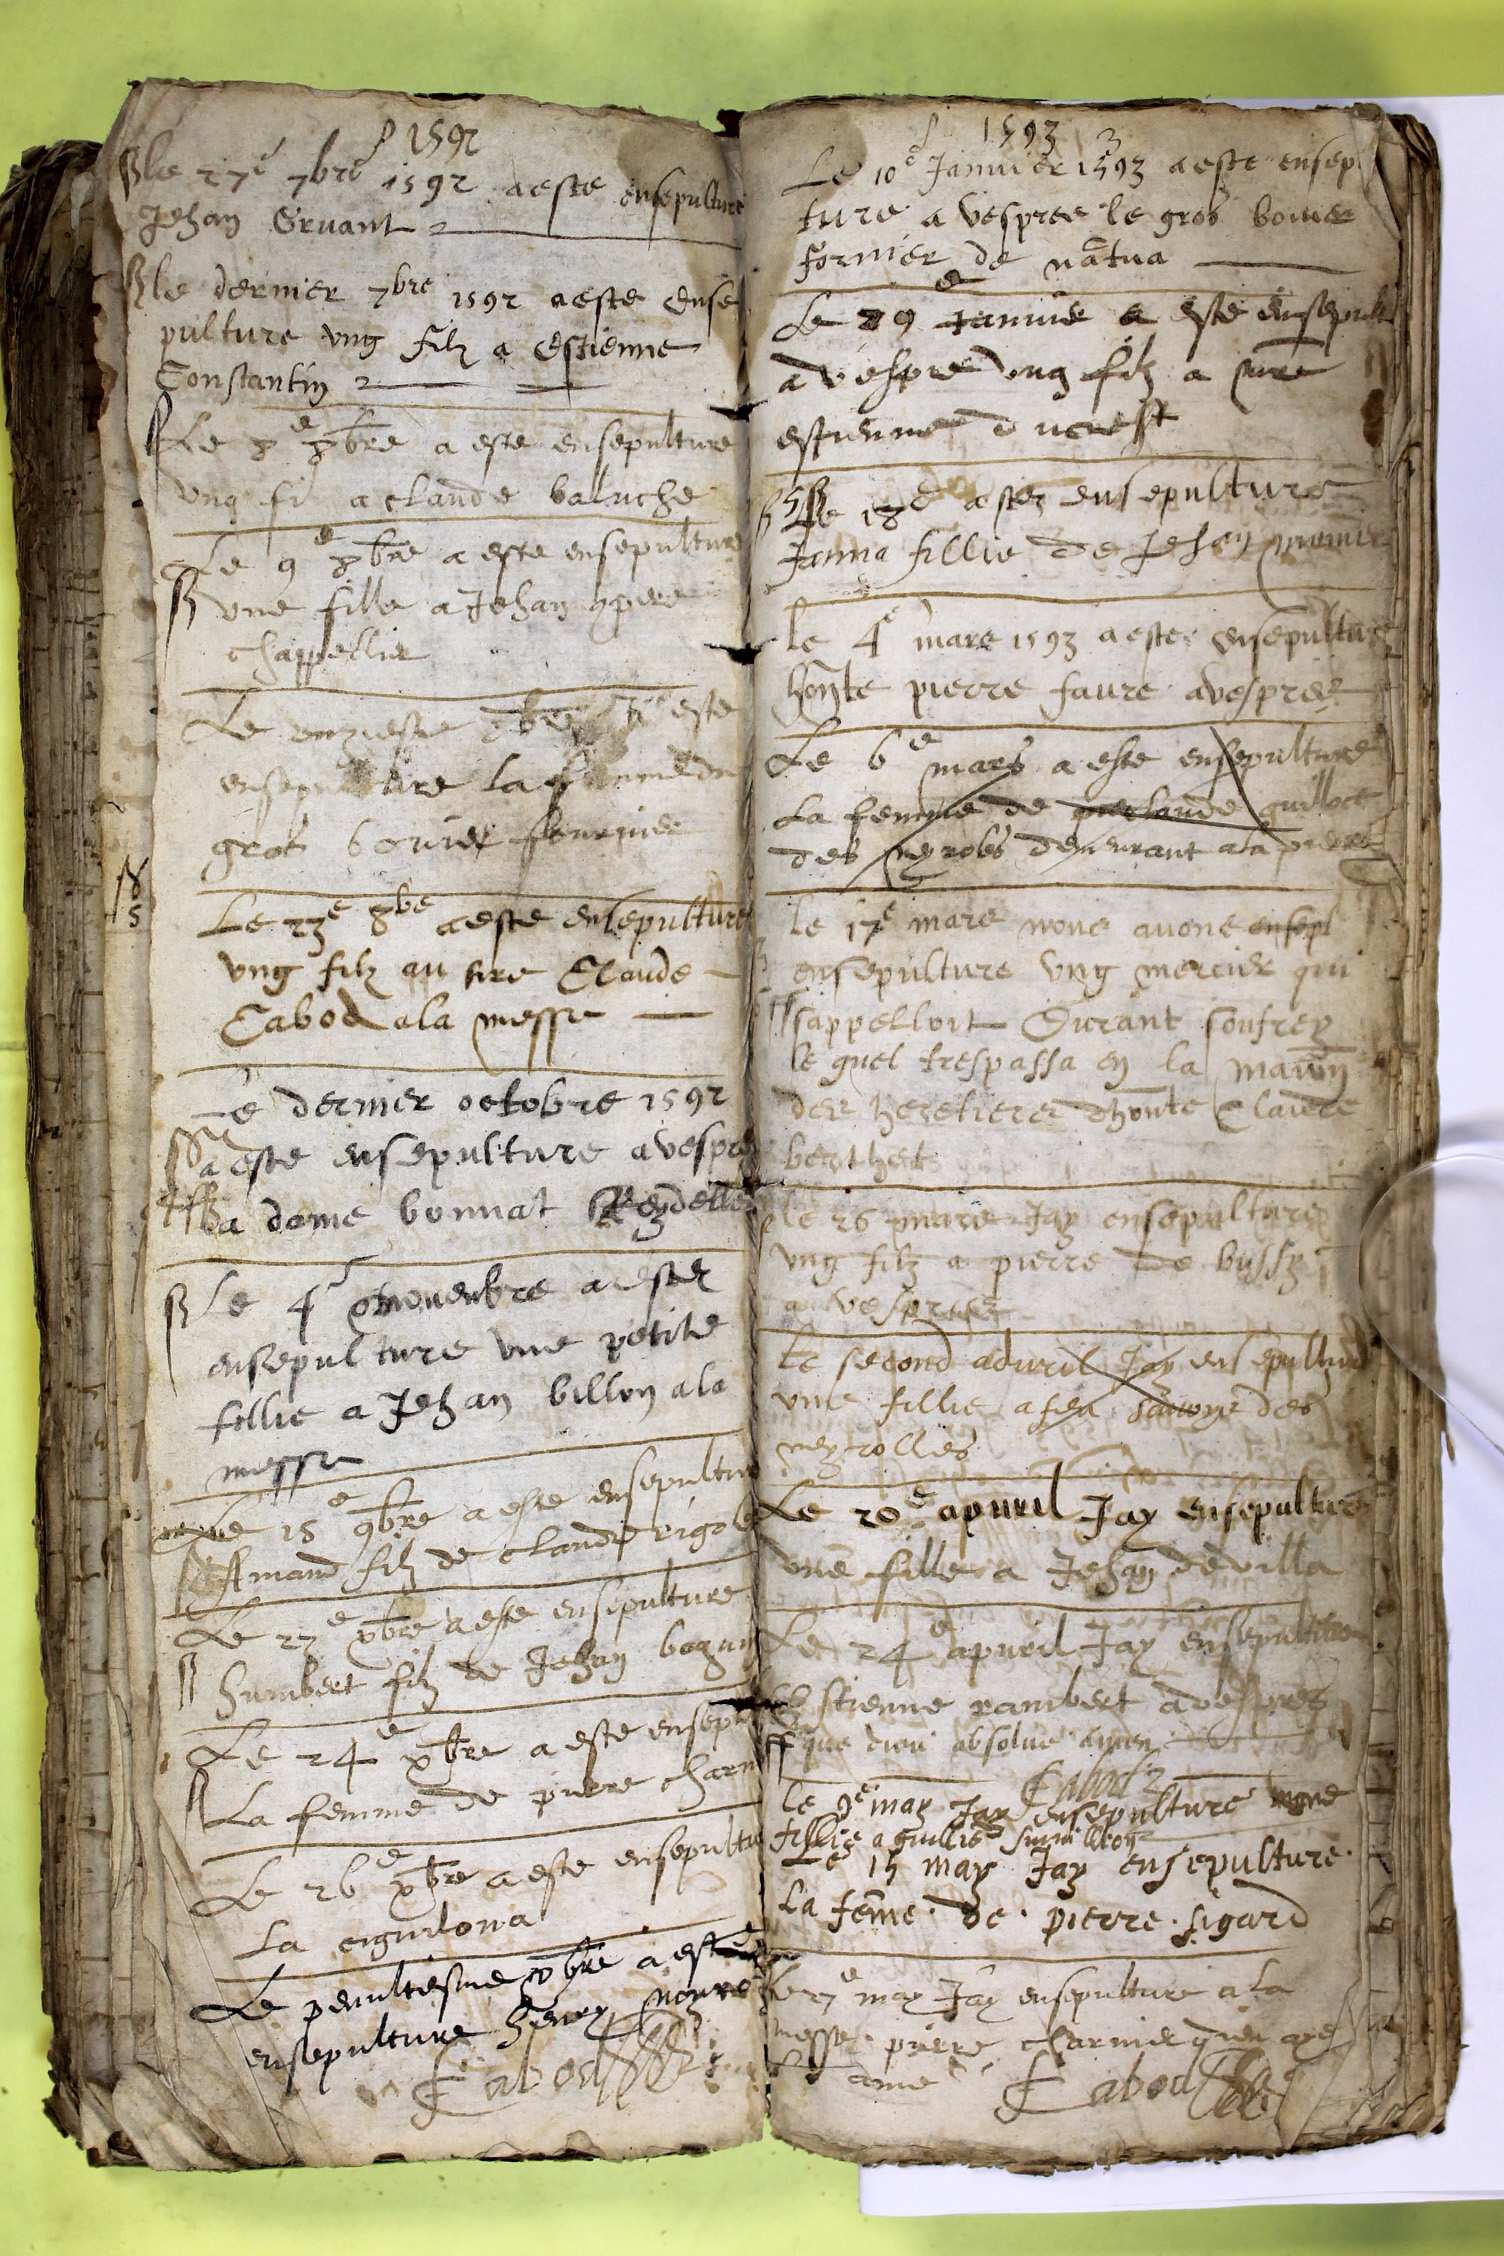 1592
le 27e 7bre 1592 a este ensepulture
Jehan Gruant
le dernier 7bre 1592 a este ense
pulture ung filz a estienne
Constantin
Le 8e 8bre a este ensepulture
ung fi a claude baluche
Le 9e 8bre a este ensepulture
une fille a Jehan
chappellier
Le este
la femme du
gros bouvier fournier
Le 23e 8bre a este ensepulture
ung filz au sire Claude
Cabod a la messe
Le dernier octobre 1592
a este ensepulture a vespre
la dame bonnat Reydellet
Le 4 novenbre a ester
ensepulture une petite
fillie a Jehan billon a la
messe
Le 15e 9bre a este ensepultur
Amand filz de claude
Le 27e bre a este ensepulture
humbert filz de Jehan
Le 24e xbre a este ensepul
La femme de pierre charn
Le 26e xbre a este ensepultu
La
Le penultiesme xbre a este
ensepulture henry
Cabod
1593
Le 10e Janvier 1593 a este ensep
ture a vespree le gros bouier
fornier de nãtua
Le 29 Janvie a este ensepult
a vespre ung filz a sire
estienne ducrest
Le 18e a ester ensepulture
Janna fillie de Jehan
le 4e mars 1593 a ester ensepulture
honte pierre faure a vespree
Le 6e mars a este ensepulture
La femme de claude guilloct
des neyrobs demeurant a la pierre
le 17e mars nous avons ensepl
ensepulture ung mercier qui
sappelloit Durant soufrey
le quel trespassa en la maison
des heretiers dhonte Claude
berthet
le 26 mars Jay ensepulture
ung filz a pierre de bussy
a vespree
le second adwril Jay ensepulture
une fillie a feu des
neyrolles
Le 20e apuril Jay ensepulture
une fille a Jehan de villa
Le 24e apvril Jay ensepulture
Estienne rambert a vespres
que dieu absolve amen
Cabod
le 9e may Jay ensepulture une
fillie a guillie
Le 15 may Jay ensepulture
la feme de pierre sigard
Le 27e may Jay ensepulture a la
messe pierre charnier dieu aye
ame
Cabod